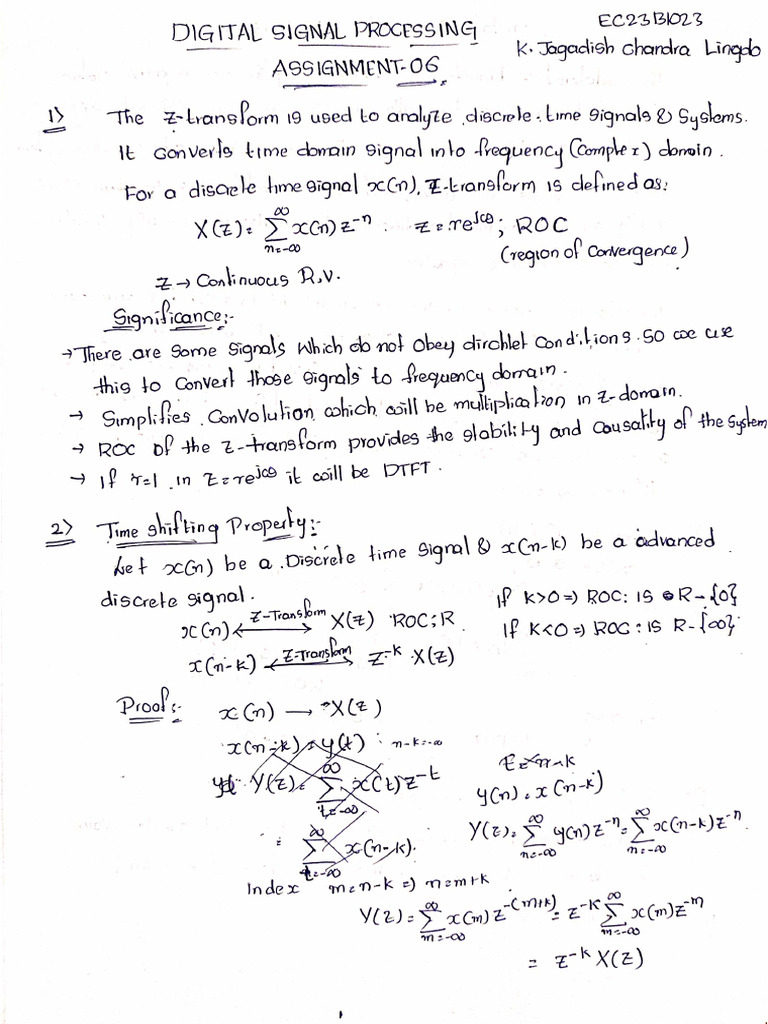 DIGITAL SIGNAL PROCESSING
EC23B1023
K. Jagadish Chandra Lingdo
ASSIGNMENT-06
1) The Z-transform is used to analyze discrete time signals & Systems.
It converts time domain signal into frequency (complex) domain.
For a discrete time signal x(n), Z-transform is defined as:
X(z) = ∑_{n=-∞}^{∞} x(n) z^{-n} z = re^{jω}; ROC
(region of Convergence)
z → Continuous R.V.
Significance:-
→ There are some signals which do not obey dirchlet conditions. So we use
this to convert those signals to frequency domain.
→ Simplifies Convolution which will be multiplication in z-domain.
→ ROC of the z-transform provides the stability and causality of the system
→ If r=1 in z=re^{jω} it will be DTFT.
2) Time shifting Property:-
Let x(n) be a Discrete time signal & x(n-k) be a advanced
discrete signal.
x(n) ←Z-Transform→ X(z) ROC: R
If k>0 ⇒ ROC: is R-{0}
x(n-k) ←Z-Transform→ z^{-k} X(z)
If k<0 ⇒ ROC: is R-{∞}
Proof:- x(n) → X(z)
x(n-k) = y(t) n-k=-∞
Y(z) = ∑_{t=-∞}^{∞} x(t) z^{-t}
= ∑_{t=-∞}^{∞} x(n-k)
t=n-k
y(n) = x(n-k)
Y(z) = ∑_{n=-∞}^{∞} y(n) z^{-n} = ∑_{n=-∞}^{∞} x(n-k) z^{-n}
Index m=n-k ⇒ n=m+k
Y(z) = ∑_{m=-∞}^{∞} x(m) z^{-(m+k)} = z^{-k} ∑_{m=-∞}^{∞} x(m) z^{-m}
= z^{-k} X(z)